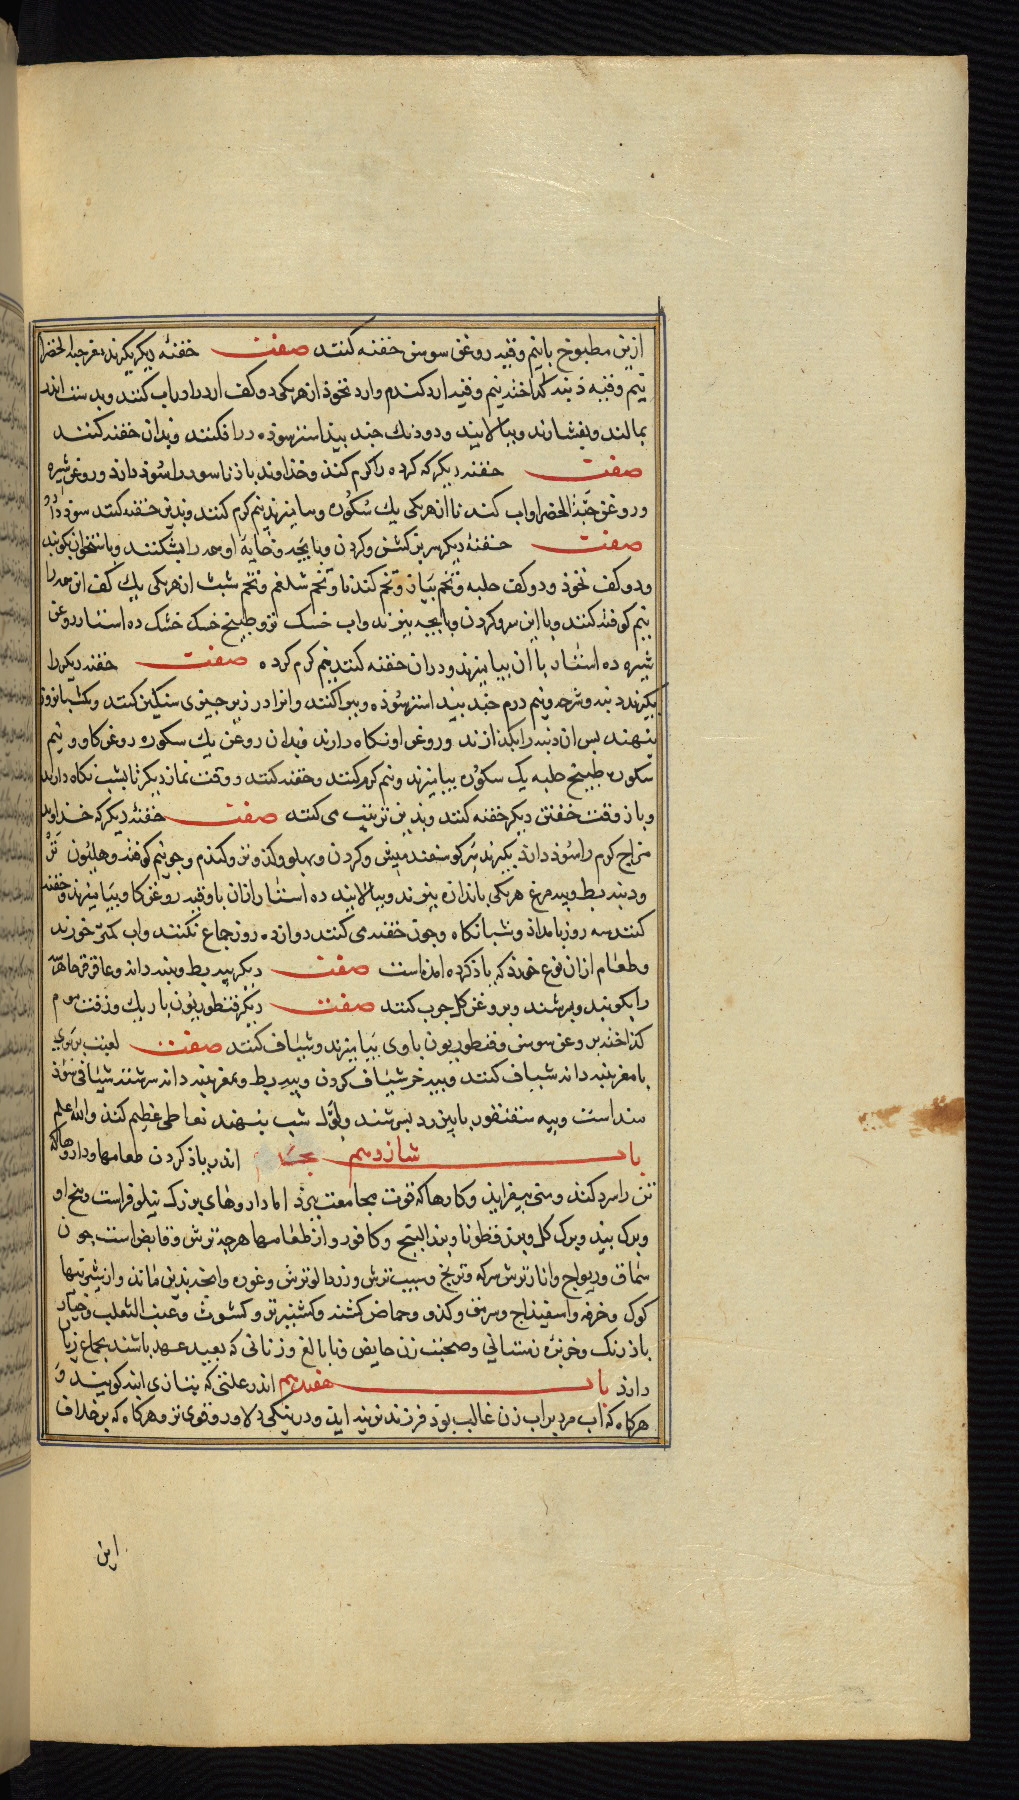 ازین مطبوخ با نیم وقیه روغن سوسن حقنه کنند صفت حقنهٔ دیکر بکیرند مغز حبة الخضرا
نیم وقیه دنبه کداخته نیم وقیه ارد کندم وارد نخوذ از هریکی دو کف اردرا در اب کنند وبدست اندر
بمالند وبفشارند وبپالایند ودو دنک جند بیداستر سوذه دران فکنند وبدان حقنه کنند
صفت حقنه دیکر که کرده را کرم کند وخداوند باذ ناسور را سوذ دارد وروغن شیره
وروغن حبة الخضرا واب کندنا از هریکی یک سکوره بیامیزند نیم کرم کنند وبدین حقنه کنند سوذ دارد
صفت حقنهٔ دیکر سر بز کشن وکردن وپایچه وخایهٔ او همه را بشکنند وبا ستخوان بکوبند
ودو کف نخوذ ودو کف حلبه وتخم پیاز وتخم کندنا وتخم شلغم وتخم شبث از هریکی یک کف این همه را
نیم کوفته کنند وبا این سر وکردن وپایچه بپزند واب خسک تر وطبیخ خسک خشک ده استار روغن
شیره ده استار با ان بیامیزند ودران حقنه کنند نیم کرم کرده صفت حقنه دیکر را
بکیرند دنبه وشرحه ونیم درم جند بیداستر سوذه وبپراکنند وانرا در زیر جیزی سنکین کنند ویک شبانروز
بنهند پس ان دنبه را بکدازند وروغن او نکاه دارند وبدان روغن یک سکوره روغن کاو ونیم
سکوره طبیخ حلبه یک سکوره بیامیزند ونیم کرم کنند وحقنه کنند ووقت نماز دیکر تا بشب نکاه دارند
وباز وقت خفتن دیکر حقنه کنند وبدین ترتیب می کنند صفت حقنهٔ دیکر که خداوند
مزاج کرم را سوذ دارد بکیرند سر کوسفند میش وکردن وپهلو وکذو تر وکندم وجو نیم کوفته وهلیون تر
ودنبه بط وپیه مرغ هریکی باندازه بپزند وبپالایند ده استار ازان با وقیه روغن کاو بیامیزند وحقنه
کنند سه روز بامداذ وشبانکاه وجون حقنه می کنند دوازده روز جماع نکنند واب کمتر خورند
وطعام ازان نوع خورند که یاذ کرده امده است صفت دیکر پیه بط وپنبه دانه وعاقرقرحا همه
را بکوبند وبسرشند وبروغن کل جرب کنند صفت دیکر قنطوریون باریک وزفت موم
کداخته بروغن سوسن وقنطوریون باوی بیامیزند وشیاف کنند صفت لعبت بربری
با مغز پنبه دانه شیاف کنند وپیه خر شیاف کردن وپیه بط ومغز پنبه دانه سرشته شیافی سوذ
مند است وپیه سقنقور با پیزرد بسرشند وباول شب بنهند نعاظی عظیم کند والله اعلم
باب شانزدهم اندر یاذ کردن طعامها وداروها که
تن را سرد کند ومنی بیفزاید وکارها که قوت مجامعت ببرذ اما داروهای بزرک نیلوفر است وبیخ او
وبرک بید وبرک کل وبزرقطونا وبزر البنج وکافور واز طعامها هرجه ترش وقابض است جون
سماق وریواج وانار ترش وسرکه وترنج وسیب ترش وزردالو ترش وغوره وانجه بدین ماند واز سبزیها
کوک وخرفه واسفیناج وسرمق وکذو وحماض کشنه وکشنیز تر وکشوث وعنب الثعلب وخیار
باذرنک وخربزه زمستانی وصحبت زن حایض ونابالغ وزنانی که بعید عهد باشند بجماع زیان
دارد باب هفدهم اندر علتی که بتازی ابنه کویند و
هرکاه که اب مرد بر اب زن غالب بود فرزند نرینه اید ودر نیکی دلاور وقوی تر وهرکاه که بر خلاف
این